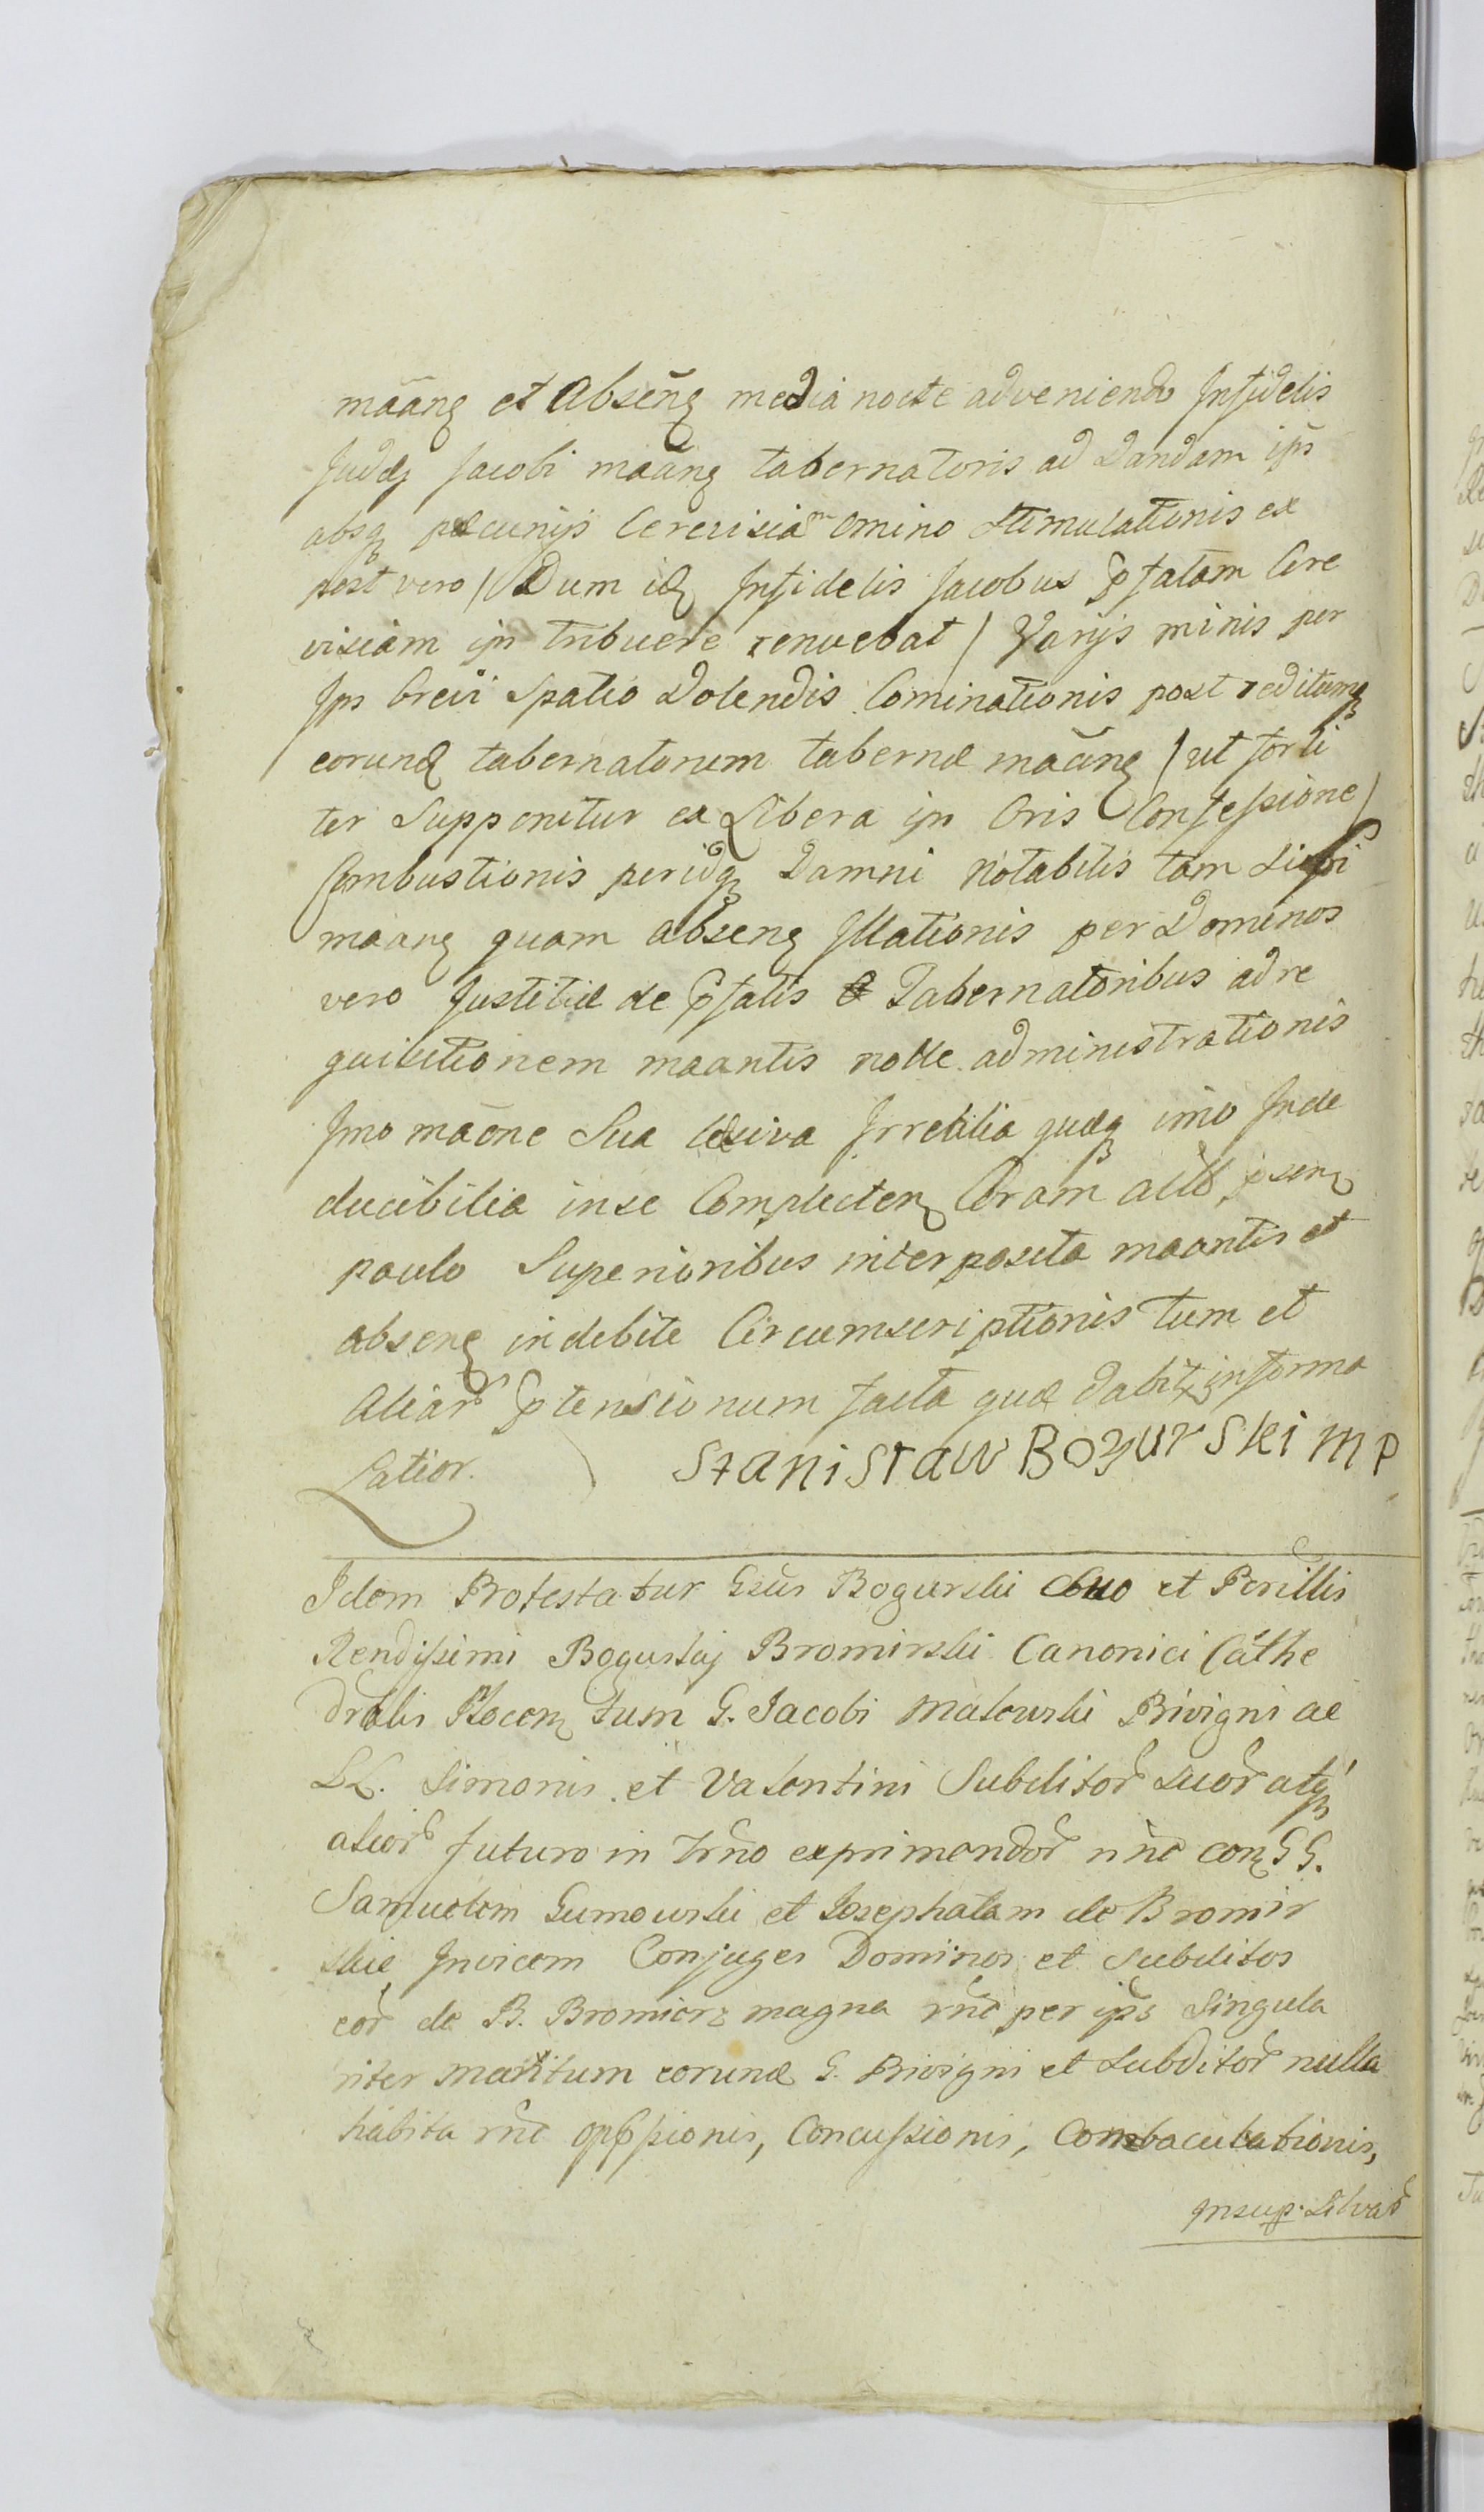 māanę et Absēnę media nocte adveniendo Infidelis
Judæj Jacobi maānę tabernatoris ad Dandam ips
absqȝ pæcunijs Cerevisiam Omino stimulationis ex
post vero / Dum idę Infidelis Jacobus pfatam Cere
visiam ips tribuere renuebat / Varijs minis per
Ips brevi Spatio Dolendis Cominationis post reditumqȝ
eorundę tabernatorum tabernæ maānę / ut forti
ter Supponitur ex Libera ips Oris Confessione /
Combustionis peridqȝ Damni Notabilis tam
maanę quam absenę Illationis per Dominos
vero Justitiæ de pfatis Tabernatoribus ad re
quisitionem maantis nolle administrationis
Imo māone Sua læsiva Irretilia quæqȝ imo Inde
ducibilia in se Complectenę Coram actis psenę
paulo Superioribus interposita maantis et
absenę indebite Circumscriptionis tum et
Aliar Ptensionum facta quæ dabitȝ in forma
Latior. Stanisław Bogurski mp
Idem Protestatur Gsūs Bogurski suo et Perillis
Rendissimi Bogusłaj Bromirski Canonici Cathe
dralis Płocenę tum G. Jacobi Małowski Privigni ac
LL. Simonis et Valentini Subditor suor atqȝ
alior futuro in Trno exprimendor nnē conę GG.
Samuelem Gumowski et Josephatam de Bromir
skie Invicem Conjuges Dominos et Subditos
eor de B. Bromierz magna rnē per ips Singula
riter maritum eorundę G. Privigni et Subditor nulla
habita rnē oppssionis, Concussionis, Combaculationis,
Insup. Silvar